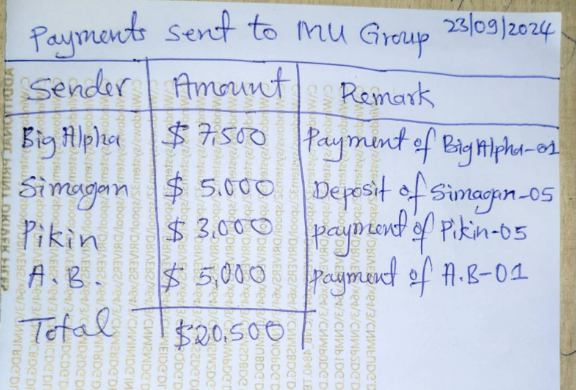 Payments sent to MU Group 23/09/2024
Sender Amount Remark
Big Alpha $ 7,500 Payment of Big Alpha-01
Simagan $ 5,000 Deposit of Simagan-05
Pikin $ 3,000 payment of Pikin-05
A.B. $ 5,000 payment of A.B-01
Total $20,500